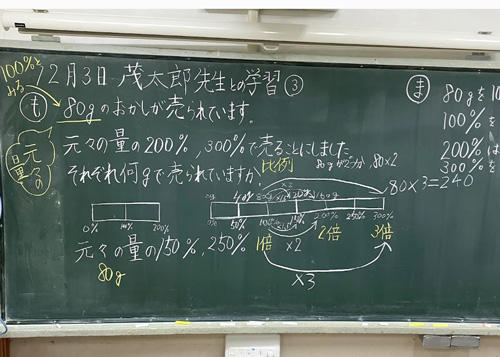 100%とみる
12月3日 茂太郎先生との学習③
も 80gのおかしが売られています。
元々の量
元々の量の200%,300%で売ることにしました
それぞれ何gで売られていますか
比例
80×2
×2
80×3=240
0% 100% 200%
0% 50% 200% 250% 300%
1倍 ×2 2倍 3倍
×3
元々の量の150%,250%
80g
ま 80gを10
100%を
200%は
300%を